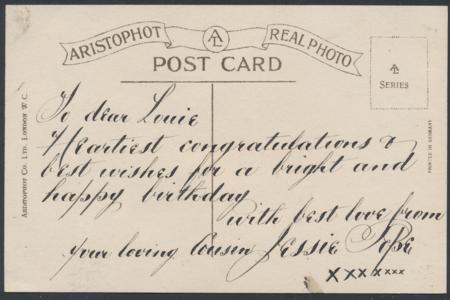 ARISTOPHOT AL REAL PHOTO
POST CARD
AL
SERIES
ARISTOPHOT CO. LTD. LONDON W.C.
PRINTED IN GERMANY
To dear Louie
Heartiest congratulations &
best wishes for a bright and
happy birthday
with best love from
your loving Cousin Jessie Pope
x x x x x x x